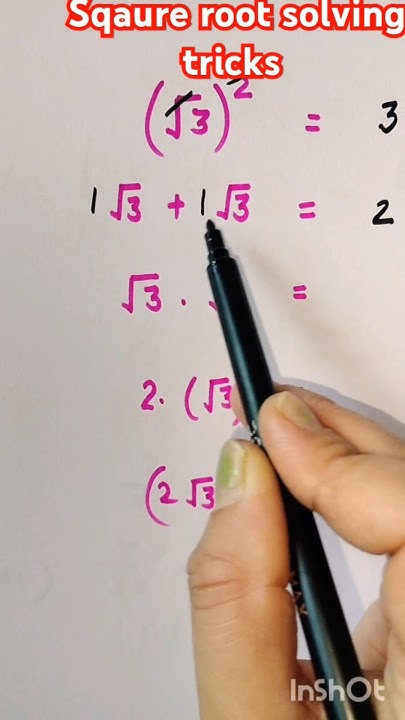 Sqaure root solving
tricks
(√3)² = 3
1√3 + 1√3 = 2
√3 · √ =
2· (√3)
(2√3
InShOt